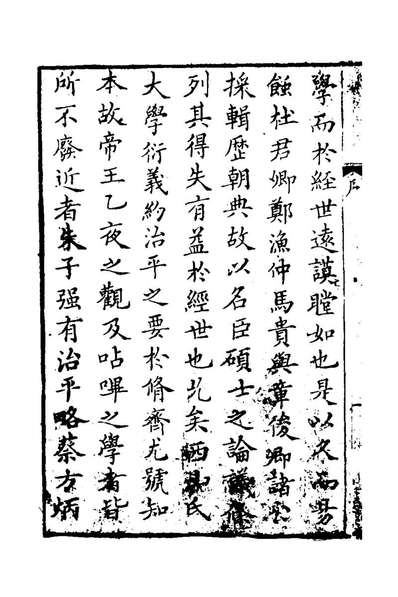 序
學而於經世遠謨瞠如也是以久而易
蝕杜君卿鄭漁仲馬貴與章俊卿諸公
採輯歷朝典故以名臣碩士之論議條
列其得失有益於經世也矣氏
大學衍義約治平之要於脩齊尤號知
本故帝王乙夜之觀及呫嗶之學者皆
所不廢近者朱子强有治平略蔡方炳